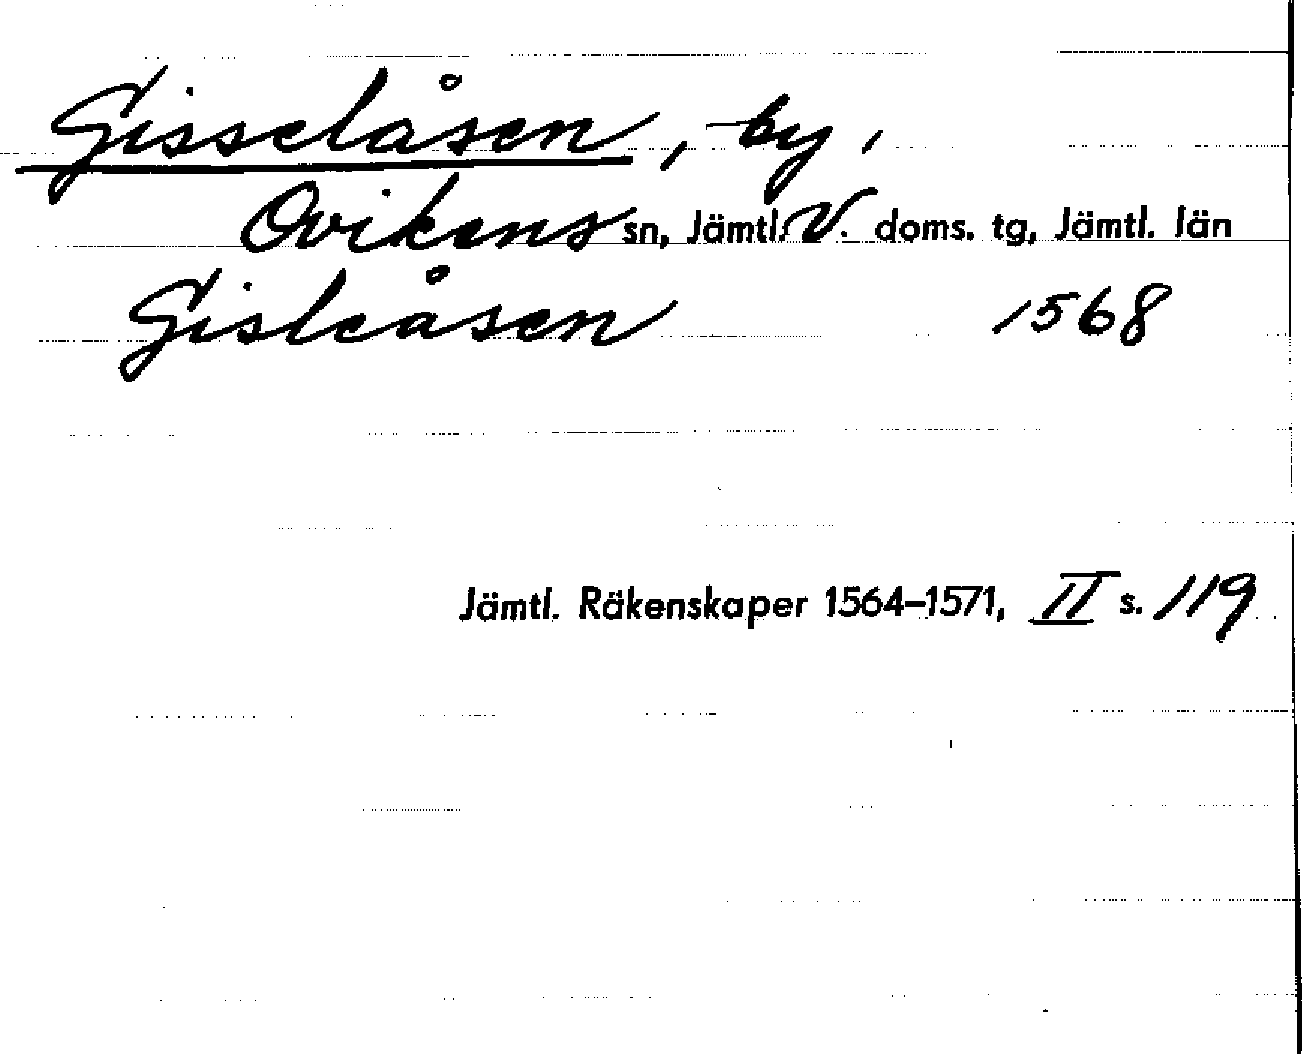 Gisselåsen, by,
Ovikens sn, Jämtl. V. doms. tg, Jämtl. län
Gisleåsen 1568
Jämtl. Räkenskaper 1564–1571, II s. 119